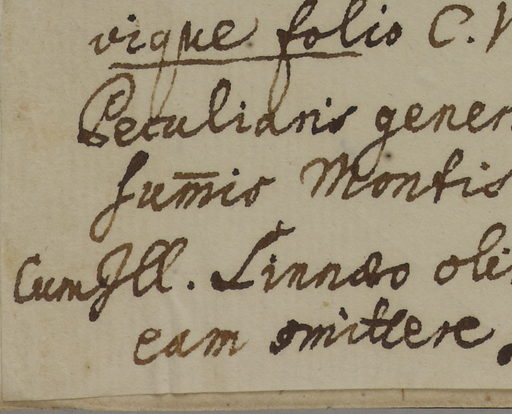 vique folio C.
Peculiaris gener
sum̄is Montis
Cum Ill. Linnæo oli
eam omittere